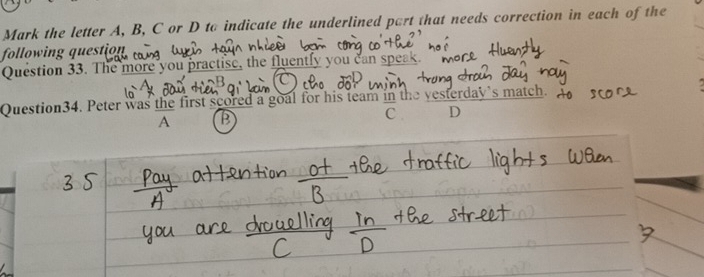 Mark the letter A, B, C or D to indicate the underlined part that needs correction in each of the
following question
bạn càng luyện tập nhiều bạn càng có thể nói
Question 33. The more you practise, the fluently you can speak. more fluently
A B C D
là đầu tiên ghi bàn cho đội mình trong trận đấu này
Question34. Peter was the first scored a goal for his team in the yesterday's match. to score
A B C D
35 Pay attention at the traffic lights when
A B
you are travelling in the street
C D